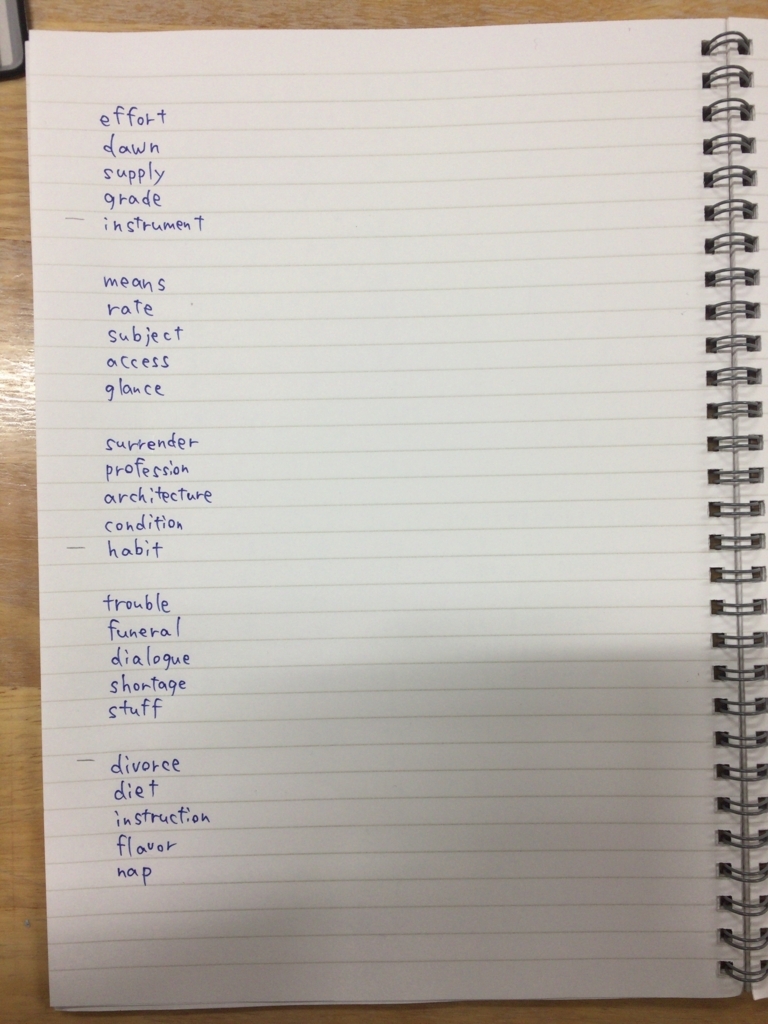 effort
dawn
supply
grade
— instrument
means
rate
subject
access
glance
surrender
profession
architecture
condition
— habit
trouble
funeral
dialogue
shortage
stuff
— divorce
diet
instruction
flavor
nap